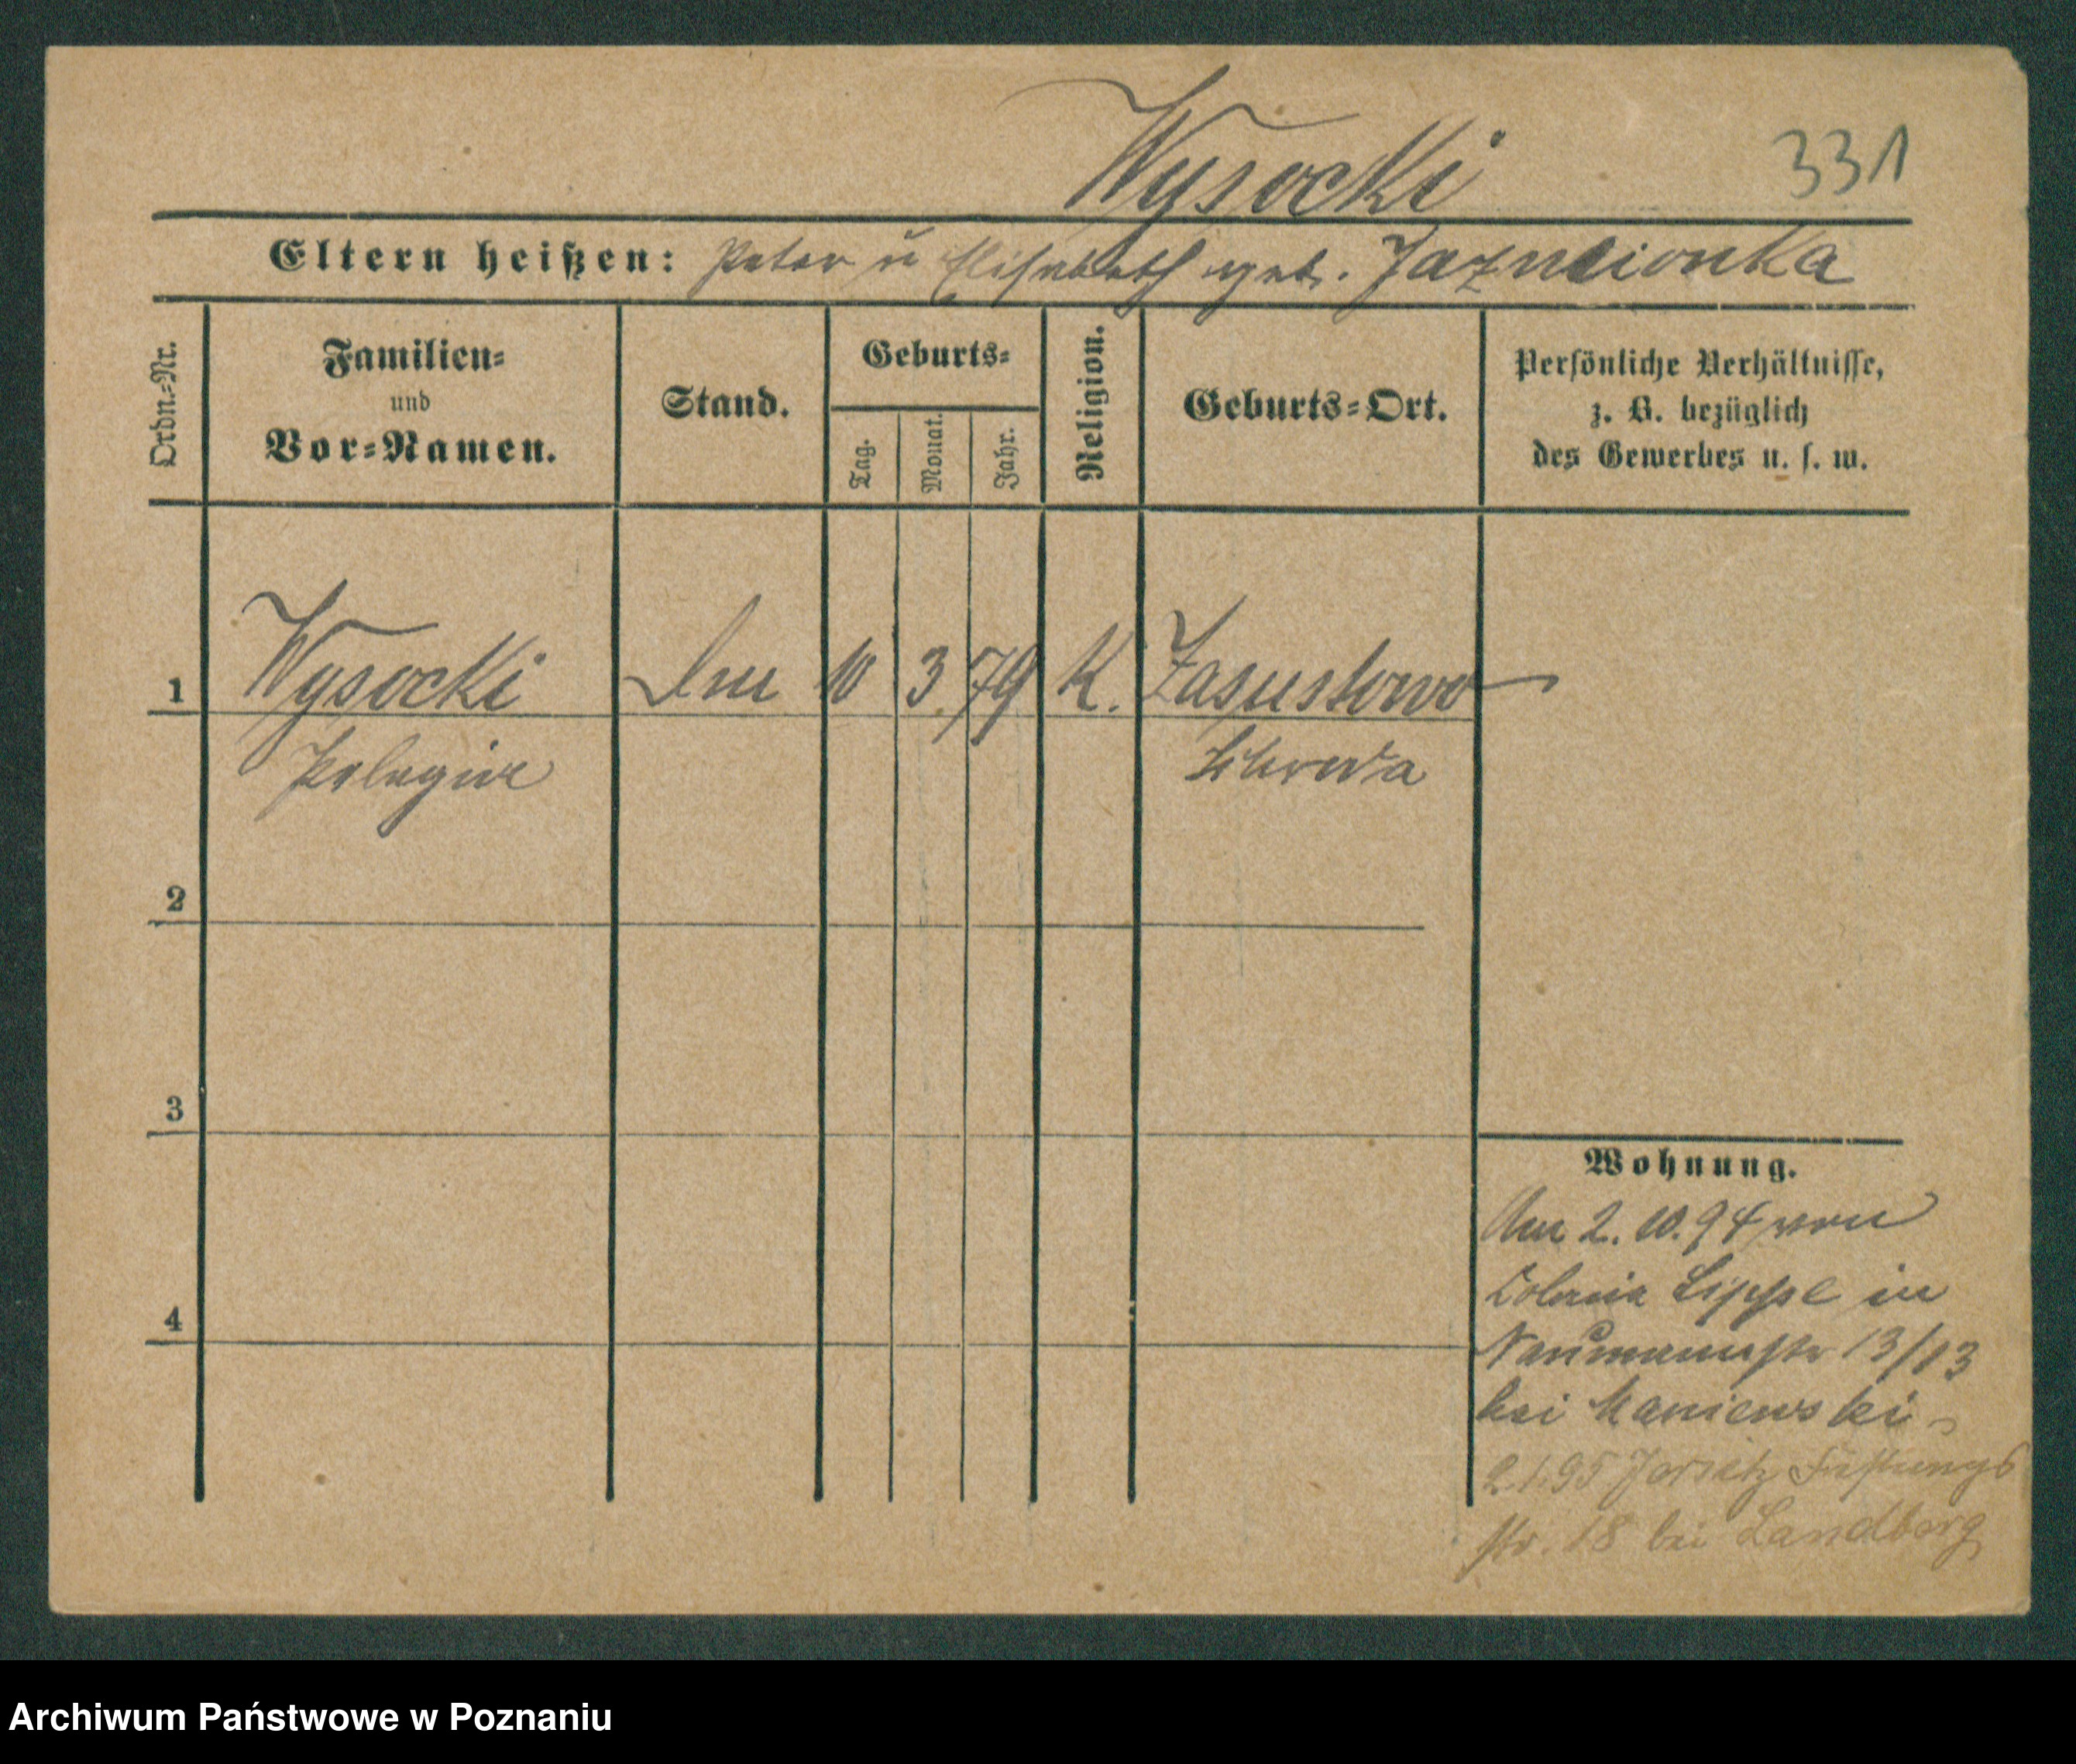 Wysocki
331
Eltern heißen: Peter u Elisabeth geb. Jazmionka
Ordn.=Nr.
Familien=
und
Vor=Namen.
Stand.
Geburts=
Tag.
Monat.
Jahr.
Religion.
Geburts=Ort.
Persönliche Verhältnisse,
z. B. bezüglich
des Gewerbes u. s. w.
1 Wysocki 10 3. 79 K. Zasustowo
Pelagia Schroda
2
3
4
Wohnung.
Am 2. 10. 94 von
in
Naumannstr 13/13
bei Maniewski
2.1.95 Jersitz
str. 18 bei Landberg
Archiwum Państwowe w Poznaniu